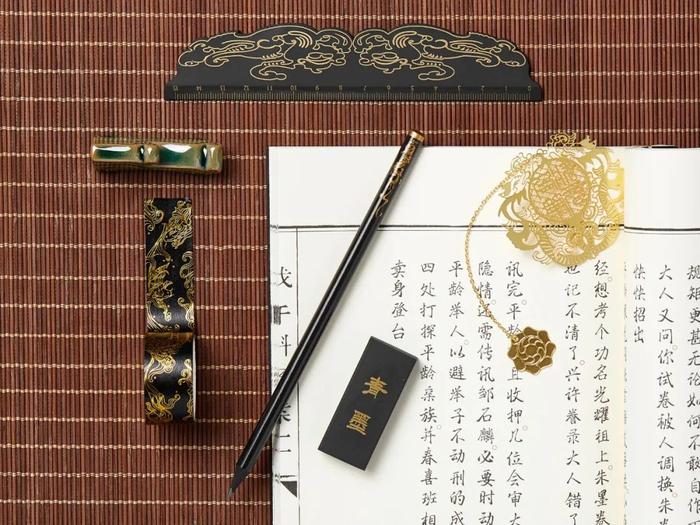 15 14 13 12 11 10 9 8 7 6 5 4 3 2 1 0
规矩更甚无论如何不敢自作
大人又问。你试卷被人调换。朱卷
快快招出
经想考个功名光耀祖上。朱墨卷
也记不清了。兴许誊录大人错了
讯完。平龄且收押。几位会审大
隐情。还需传讯邹石麟。必要时动
平龄举人。以避举子不动刑的成
四处打探平龄亲族。并春喜班相
卖身登台
午科
青墨